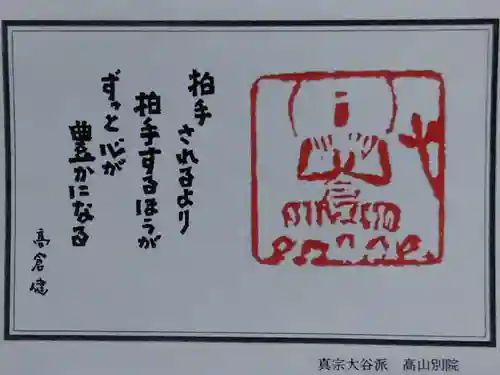 拍手されるより
拍手するほうが
ずっと心が
豊かになる
高倉健
真宗大谷派　高山別院